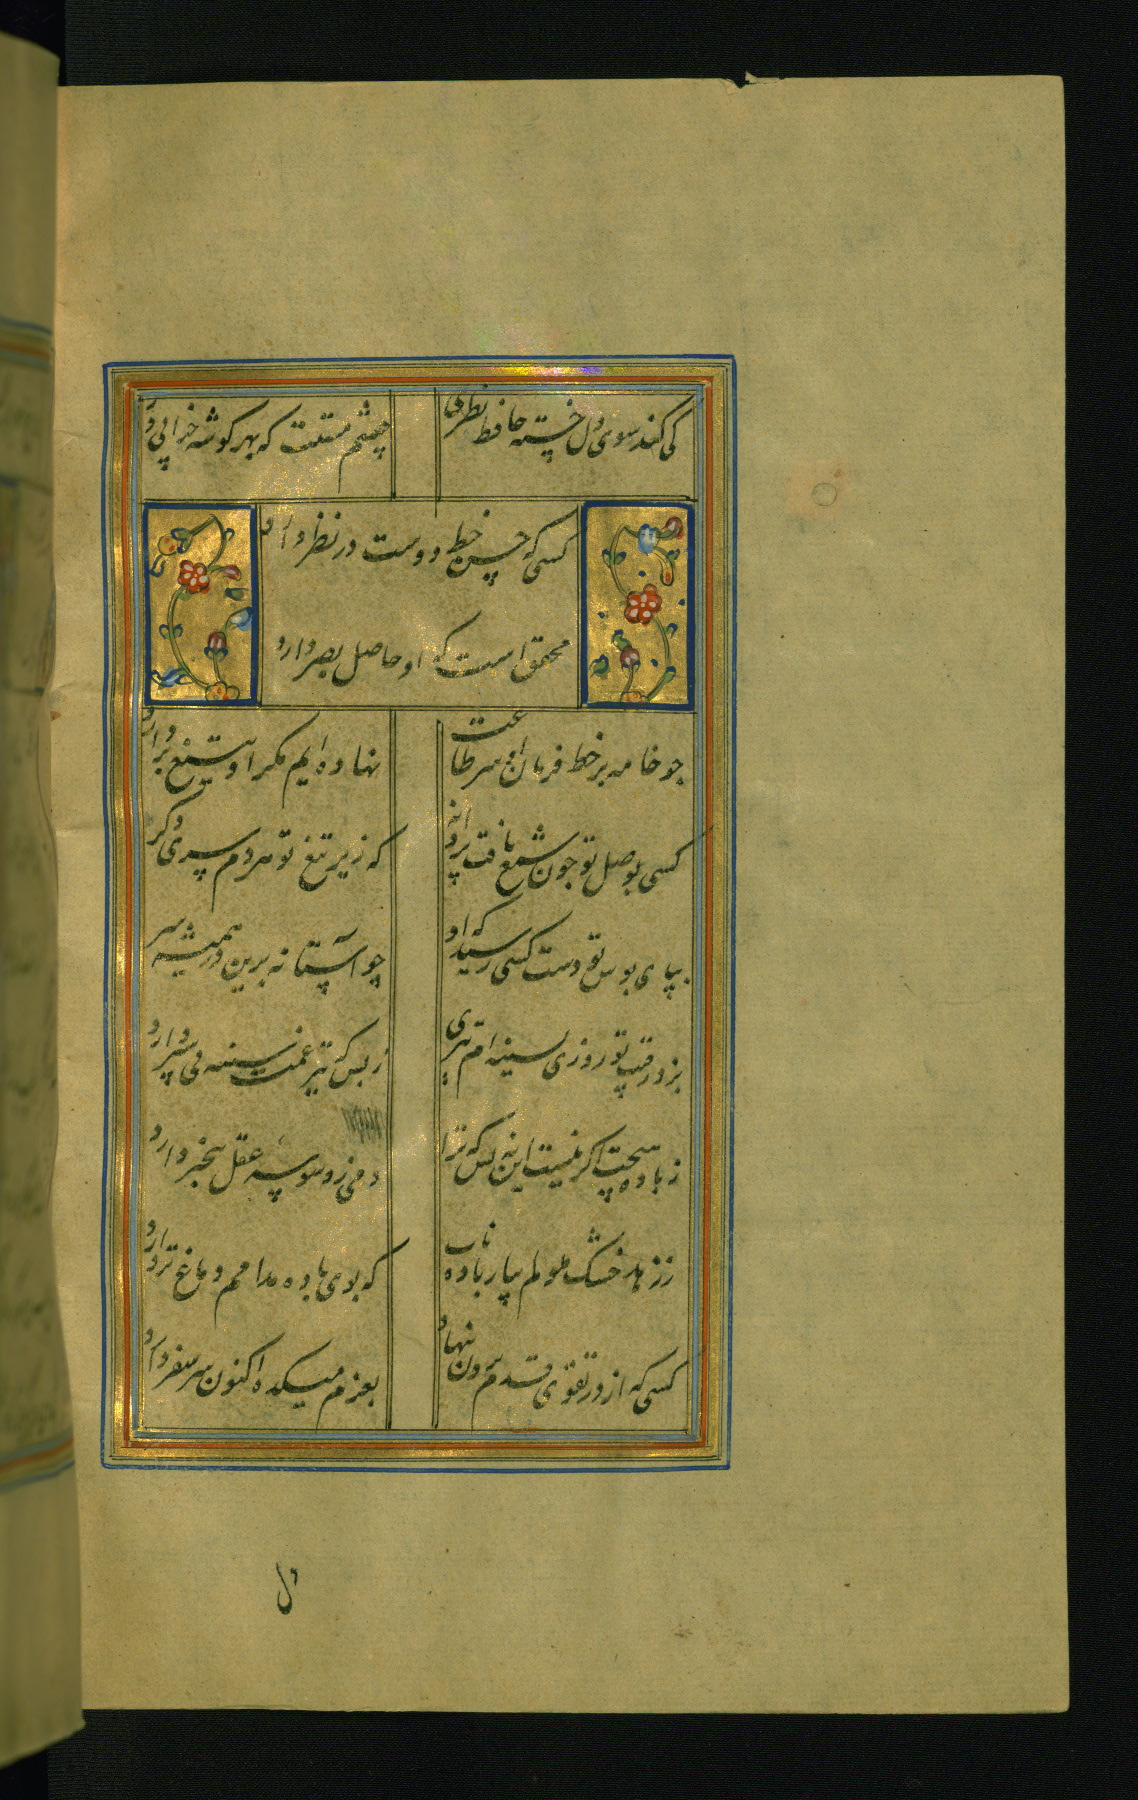 کی کند سوی دل خسته حافظ نظری
چشم مستت که بهر کوشه خرابی دارد
کسی که حسن خط دوست در نظر دارد
محقق است که او حاصل بصر دارد
چو خامه بر خط فرمان او سر طاعت
نهاده ایم مکر او بتیغ بردارد
کسی بوصل تو چون شمع یافت پروانه
که زیر تیغ تو هر دم سری دکر دارد
بپای بوس تو دست کسی رسید که او
چو آستانه برین در همیشه سر دارد
بزد رقیب تو روزی بسینه ام تیری
ز بس که تیر غمت سینه بی سپر دارد
ز باده هیچت اکر نیست این نه بس که ترا
دمی ز وسوسه عقل بیخبر دارد
ز زهد خشک ملولم بیار باده ناب
که بوی باده مدامم دماغ تر دارد
کسی که از در تقوی قدم برون ننهاد
بعزم میکده اکنون سر سفر دارد
دل